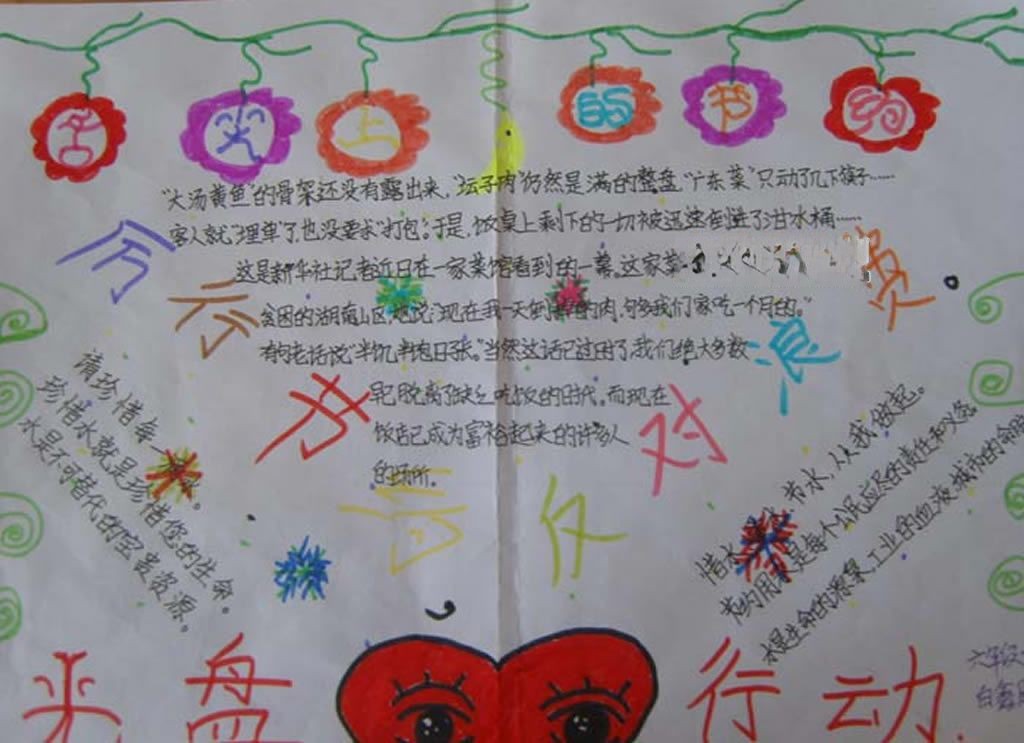 舌尖上的节约
"大汤黄鱼"的骨架还没有露出来，"坛子肉"仍然是满的整盘，"广东菜"只动了几下筷子……
客人就"埋单"了，也没要求"打包"。于是，饭桌上剩下的一切被迅速倒进了泔水桶……
这是新华社记者近日在一家菜馆看到的一幕。这家菜
贫困的湖南山区，她说："现在我一天倒掉的肉，够我们家吃一个月的。"
有句老话说"半饥半饱日子长。"当然这话已过时了，我们绝大多数
早已脱离了缺乏吃饭的时代。而现在
饭店已成为富裕起来的许多人
的场所。
今云方言
反对浪费
请珍惜每一 水。
珍惜水就是珍惜您的生命。
水是不可替代的宝贵资源。
惜水 节水，从我做起。
节约用水是每个公民应尽的责任和义务
水是生命的源泉、工业的血液、城市的命脉
光盘行动
六年级
白